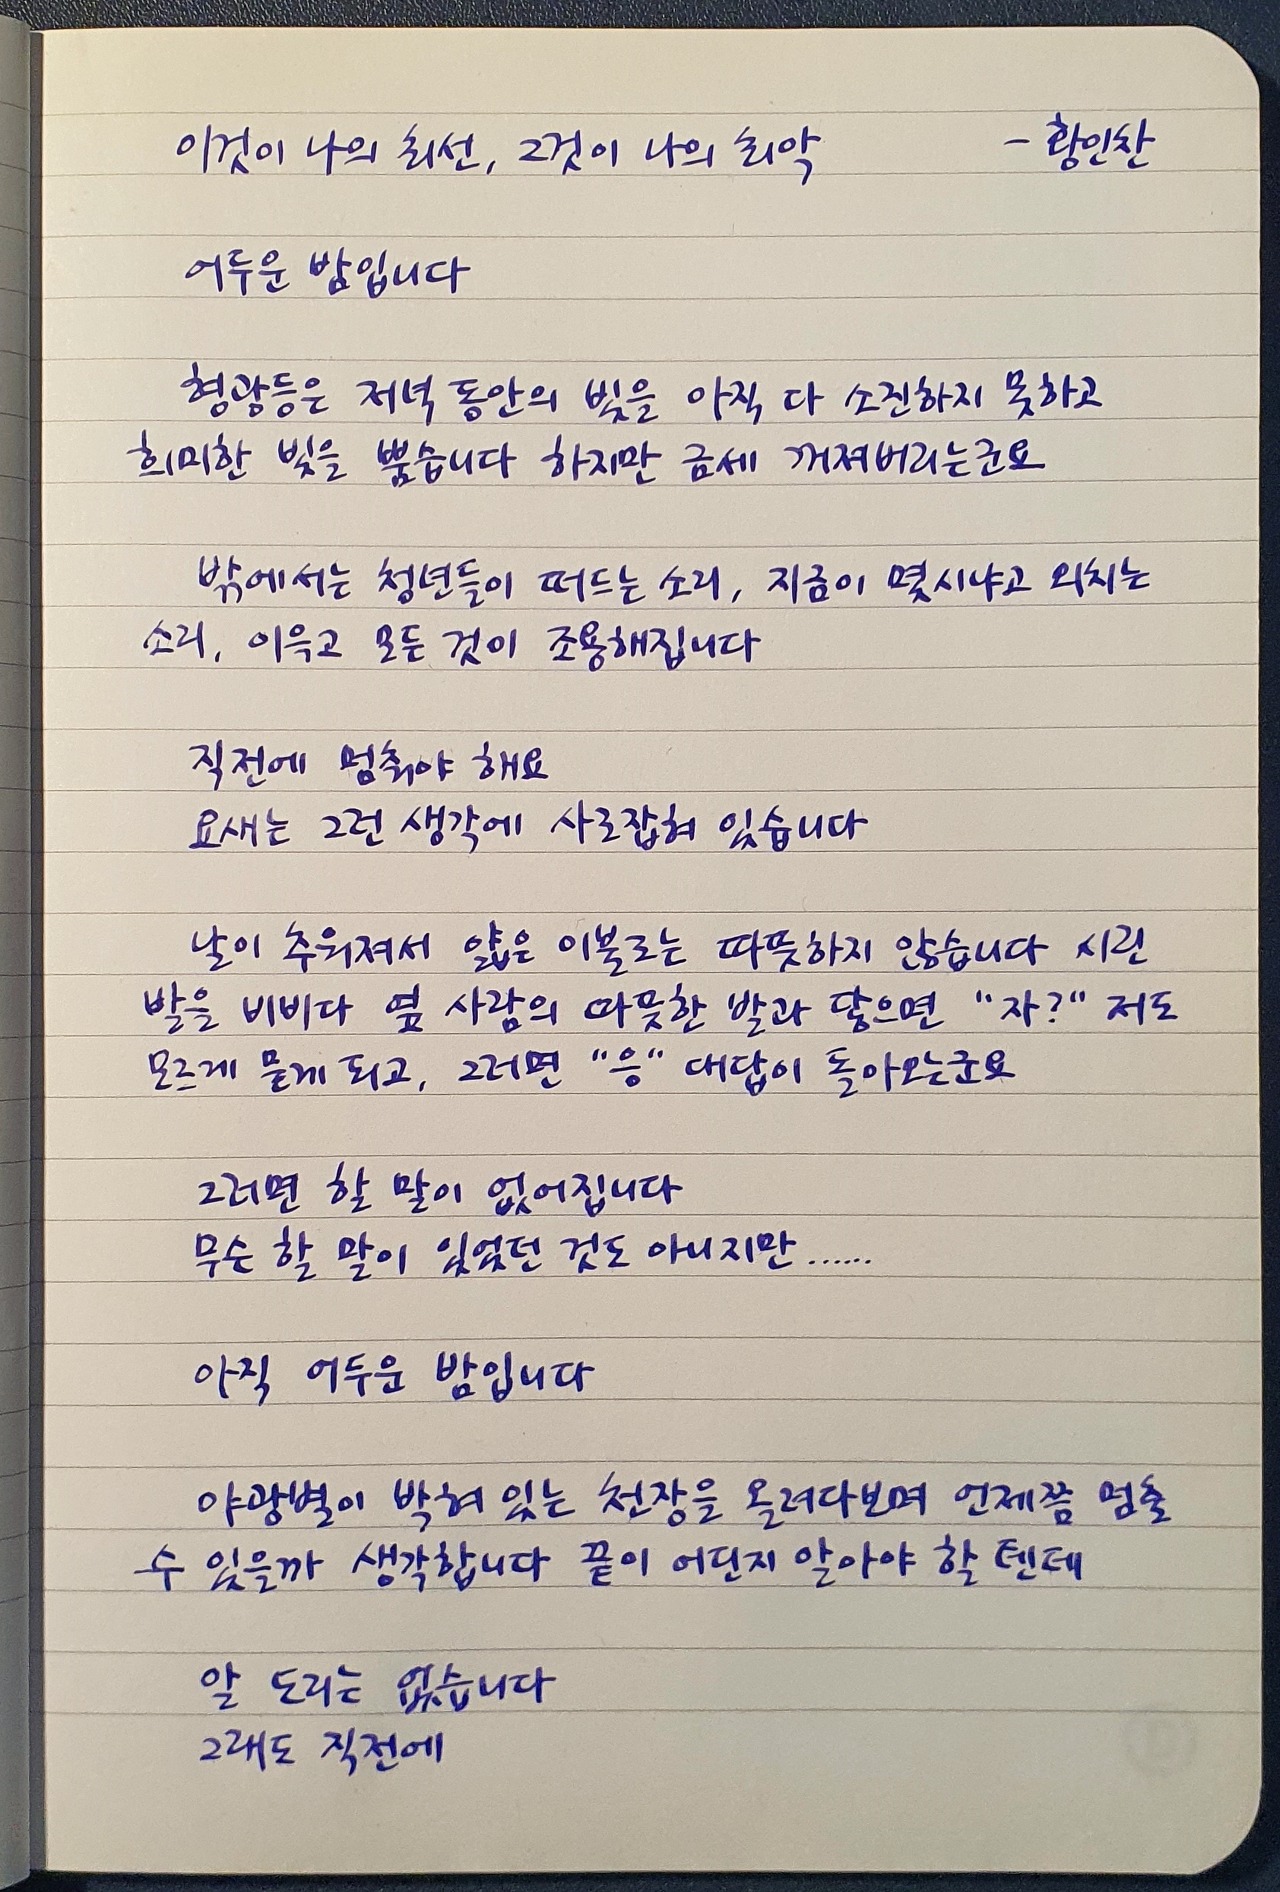 이것이 나의 최선, 그것이 나의 최악 - 황인찬
어두운 밤입니다
형광등은 저녁 동안의 빛을 아직 다 소진하지 못하고
희미한 빛을 뿜습니다 하지만 금세 꺼져버리는군요
밖에서는 청년들이 떠드는 소리, 지금이 몇시냐고 외치는
소리, 이윽고 모든 것이 조용해집니다
직전에 멈춰야 해요
요새는 그런 생각에 사로잡혀 있습니다
날이 추워져서 얇은 이불로는 따뜻하지 않습니다 시린
발을 비비다 옆 사람의 따뜻한 발과 닿으면 "자?" 저도
모르게 묻게 되고, 그러면 "응" 대답이 돌아오는군요
그러면 할 말이 없어집니다
무슨 할 말이 있었던 것도 아니지만......
아직 어두운 밤입니다
야광별이 박혀 있는 천장을 올려다보며 언제쯤 멈출
수 있을까 생각합니다 끝이 어딘지 알아야 할 텐데
알 도리는 없습니다
그래도 직전에